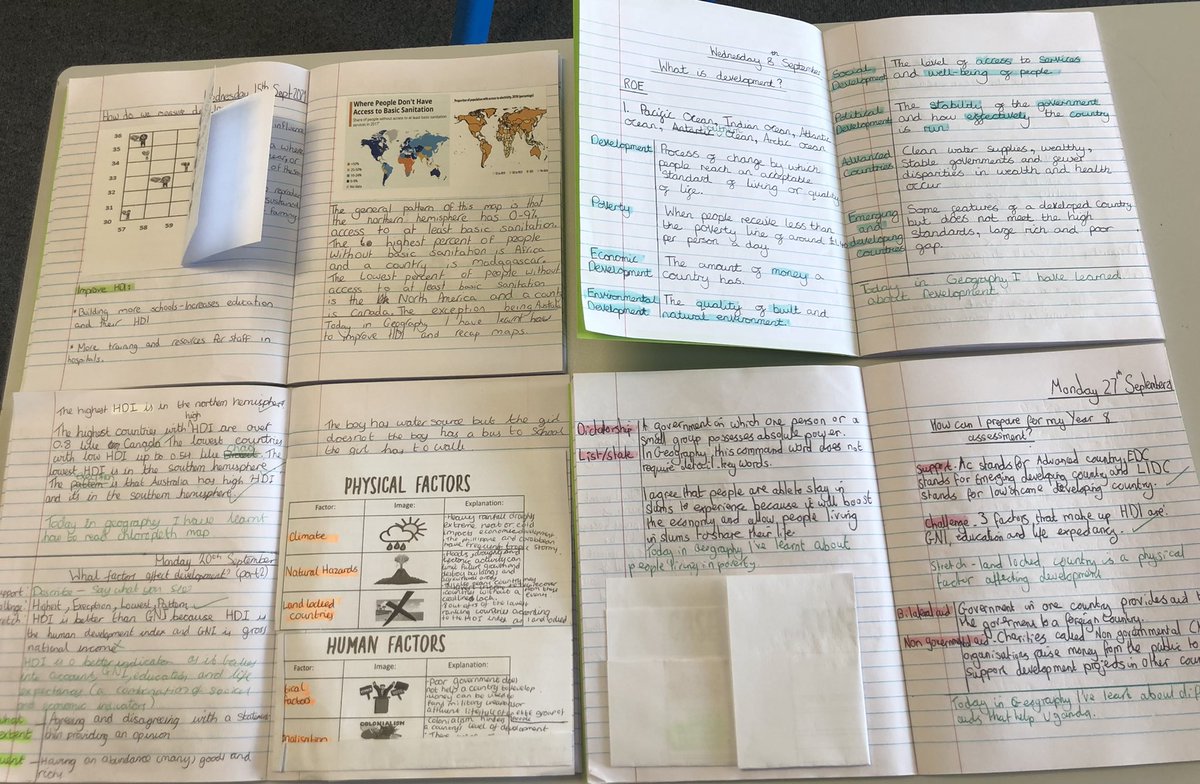 Wednesday 15th Sept 2021
How do we measure de
36
35
34
33
32
31
30
57
58
59
Improve HDI
• Building more schools - Increases education
and their HDI
• More training and resources for staff in
hospitals.
Where People Don't Have
Access to Basic Sanitation
Share of people without access to at least basic sanitation
services in 2017
Proportion of population with access to electricity, 2018 (percentage)
The general pattern of this map is that
the northern hemisphere has 0-9%
access to at least basic sanitation.
The highest percent of people
without basic sanitation is Africa
and a country is madagascar.
The lowest percent of people without
access to at least basic sanitation
is the North America and a count
is Canada. The exception being
Today in Geography I have learnt how
to improve HDI and recap maps.
Wednesday 8th September
What is development?
ROE
1. Pacific Ocean, Indian ocean, Atlantic
ocean, ocean, Arctic ocean
Development
Process of change by which
people reach an acceptable
standard of living or quality
of life.
Poverty
When people receive less than
the poverty line of around
per person a day
Economic
Development
The amount of money a
country has.
Environmental
Development
The quality of built and
natural environment.
Social
Development
The level of access to services
and well-being of people
Political
Development
The stability of the government
and how effectively the country
is run
Advanced
Countries
Clean water supplies, wealthy,
stable governments and fewer
disparities in wealth and health
occur
Emerging
and
developing
countries
Some features of a developed country
but does not meet the high
standards, large rich and poor
gap.
Today in Geography I have learned
about Development.
The highest HDI is in the northern hemisphere
The highest countries with high HDI are over
0.8 like Canada. The lowest countries
with low HDI up 0.54 like The
lowest HDI is in the southern hemisphere
The is that Australia has high HDI
and its in the southern hemisphere
Today in geography I have learnt
how to read choropleth map
Monday 20th September
What factors affect development? (part 2)
Describe - Say what you see?
Highest, Exception, Lowest, Pattern
HDI is better than GNI because HDI is
the human development index and GNI is gross
national income
HDI is a better indicator as it takes
into account GNI, education and life
expectancy (a combination of social
and economic indicators)
Agreeing and disagreeing with a statement
then providing an opinion
Having an abundance (many) goods and
rich
The boy has water source but the girl
does not the boy has a bus to school
the girl has to walk
PHYSICAL FACTORS
Factor:
Image:
Explanation:
Climate
Natural Hazards
Land locked
countries
HUMAN FACTORS
Factor:
Image:
Explanation:
Poor government does
not help a country to develop
COLONIALISM
a country's level of development
Dictatorship
A government in which one person or a
small group possesses absolute power.
List/state
In Geography, this command word does not
require detail. key words.
I agree that people are able to stay in
slums to experience because it will boost
the economy and allow people living
in slums to share their life.
Today in Geography, I've learnt about
people living in poverty
Monday 27th September
How can I prepare for my Year 8
assessment?
Support - AC stands for Advanced country, EDC
stands for Emerging developing country and LIDC
stands for low income developing country.
Challenge - 3 factors that make up HDI are:
GNI, education and life expectancy.
Stretch - land locked country is a physical
factor affecting development
Bilateral aid
Government in one country provides aid
the government to a foreign country.
Non government aid
Charities called Non governmental
organisations raise money from the public to
support development projects in other
Today in Geography I've learnt about
aids that help Uganda.